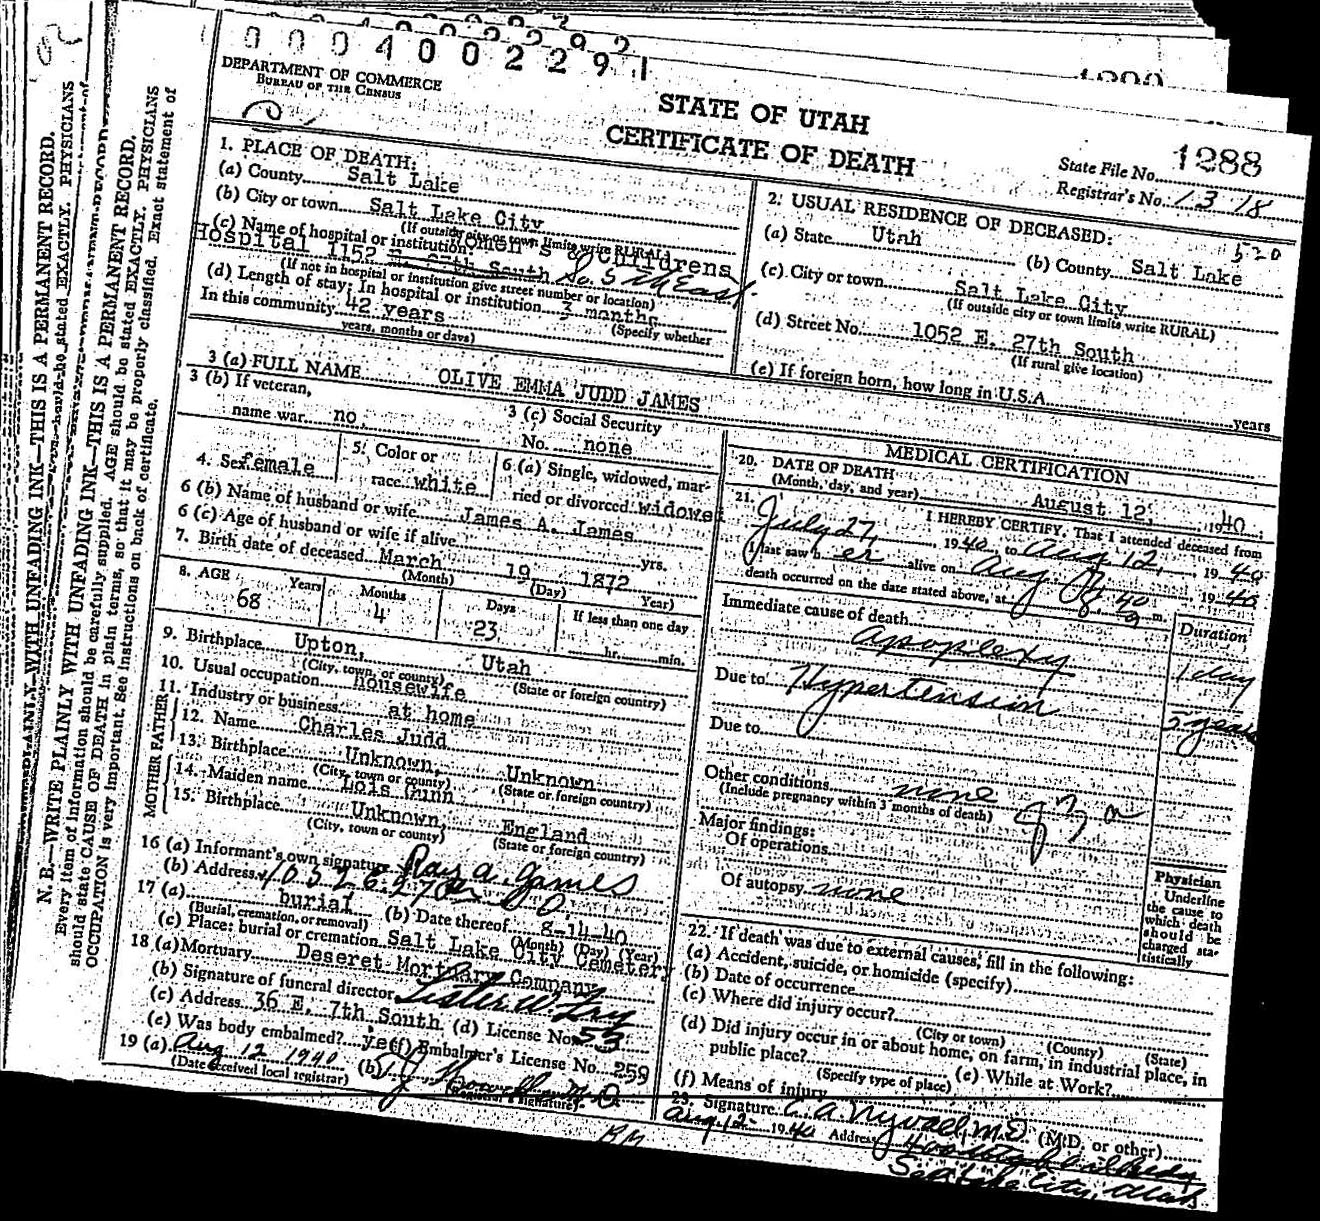 0 0 0 4 0 0 2 2 9 1
DEPARTMENT OF COMMERCE
BUREAU OF THE CENSUS
STATE OF UTAH
CERTIFICATE OF DEATH
State File No. 1288
Registrar's No. 1318
1. PLACE OF DEATH:
(a) County Salt Lake
(b) City or town Salt Lake City
(If outside city or town limits write RURAL)
(c) Name of hospital or institution: Women's & Childrens
Hospital 1152 E. 27th South So. 5th East.
(If not in hospital or institution give street number or location)
(d) Length of stay: In hospital or institution 3 months
(Specify whether
In this community 42 years
years, months or days)
2. USUAL RESIDENCE OF DECEASED:
520
(a) State Utah (b) County Salt Lake
(c) City or town Salt Lake City
(If outside city or town limits write RURAL)
(d) Street No. 1052 E. 27th South
(If rural give location)
(e) If foreign born, how long in U.S.A. years
3 (a) FULL NAME OLIVE EMMA JUDD JAMES
3 (b) If veteran,
name war no
3 (c) Social Security
No. none
4. Sex female
5. Color or
race white
6 (a) Single, widowed, mar-
ried or divorced widowed
6 (b) Name of husband or wife James A. James
6 (c) Age of husband or wife if alive yrs.
7. Birth date of deceased March 19 1872
(Month) (Day) Year)
8. AGE Years Months Days If less than one day
68 4 23 hr. min.
9. Birthplace Upton, Utah
(City, town, or county) (State or foreign country)
10. Usual occupation housewife
11. Industry or business at home
FATHER
12. Name Charles Judd
13. Birthplace Unknown, Unknown
(City, town or county) (State or foreign country)
MOTHER
14. Maiden name Lois
15. Birthplace Unknown, England
(City, town or county) (State or foreign country)
16 (a) Informant's own signature Ray A. James
(b) Address 1052 E. 27th So.
17 (a) burial (b) Date thereof 8-14-40
(Burial, cremation, or removal) (Month) (Day) (Year)
(c) Place: burial or cremation Salt Lake City Cemetery
18 (a) Mortuary Deseret Mortuary Company
(b) Signature of funeral director
(c) Address 36 E. 7th South (d) License No. 53
(e) Was body embalmed? yes (f) Embalmer's License No. 259
19 (a) Aug 12 1940 (b)
(Date received local registrar) (Registrar's signature)
MEDICAL CERTIFICATION
20. DATE OF DEATH
(Month, day, and year) August 12, 1940.
21. I HEREBY CERTIFY, That I attended deceased from
July 27, 1940 to Aug. 12, 1940
I last saw her alive on Aug. 1940
death occurred on the date stated above, at m.
Immediate cause of death Duration
apoplexy 1 day
Due to Hypertension 5 years
Due to
Other conditions none
(Include pregnancy within 3 months of death)
Major findings:
Of operations
Of autopsy none
Physician
Underline
the cause to
which death
should be
charged sta-
tistically
22. If death was due to external causes, fill in the following:
(a) Accident, suicide, or homicide (specify)
(b) Date of occurrence
(c) Where did injury occur?
(City or town) (County) (State)
(d) Did injury occur in or about home, on farm, in industrial place, in
public place?
(Specify type of place) (e) While at Work?
(f) Means of injury
23. Signature M.D. (M.D. or other)
Aug 12 1940 Address
Salt Lake City, Utah
N. B.—WRITE PLAINLY WITH UNFADING INK—THIS IS A PERMANENT RECORD.
Every item of information should be carefully supplied. AGE should be stated EXACTLY. PHYSICIANS
should state CAUSE OF DEATH in plain terms, so that it may be properly classified. Exact statement of
OCCUPATION is very important. See instructions on back of certificate.